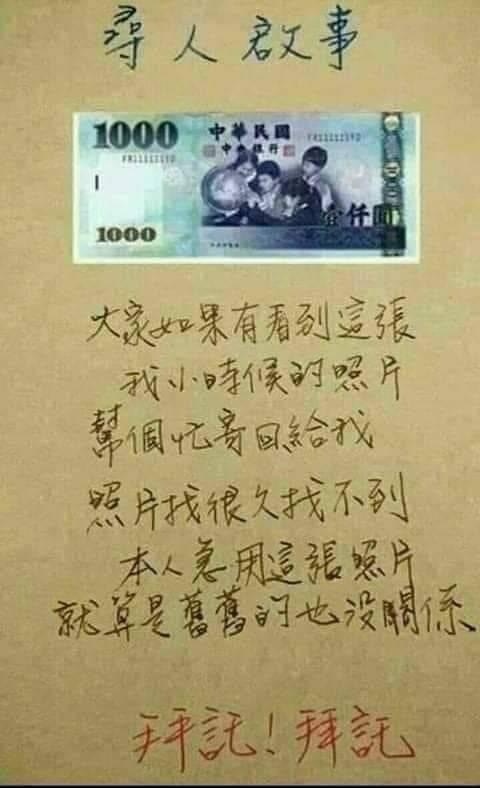 尋人啟事
1000
中華民國
中央銀行
1000
壹仟圓
大家如果有看到這張
我小時候的照片
幫個忙寄回給我
照片找很久找不到
本人急用這張照片
就算是舊舊的也沒關係
拜託!拜託